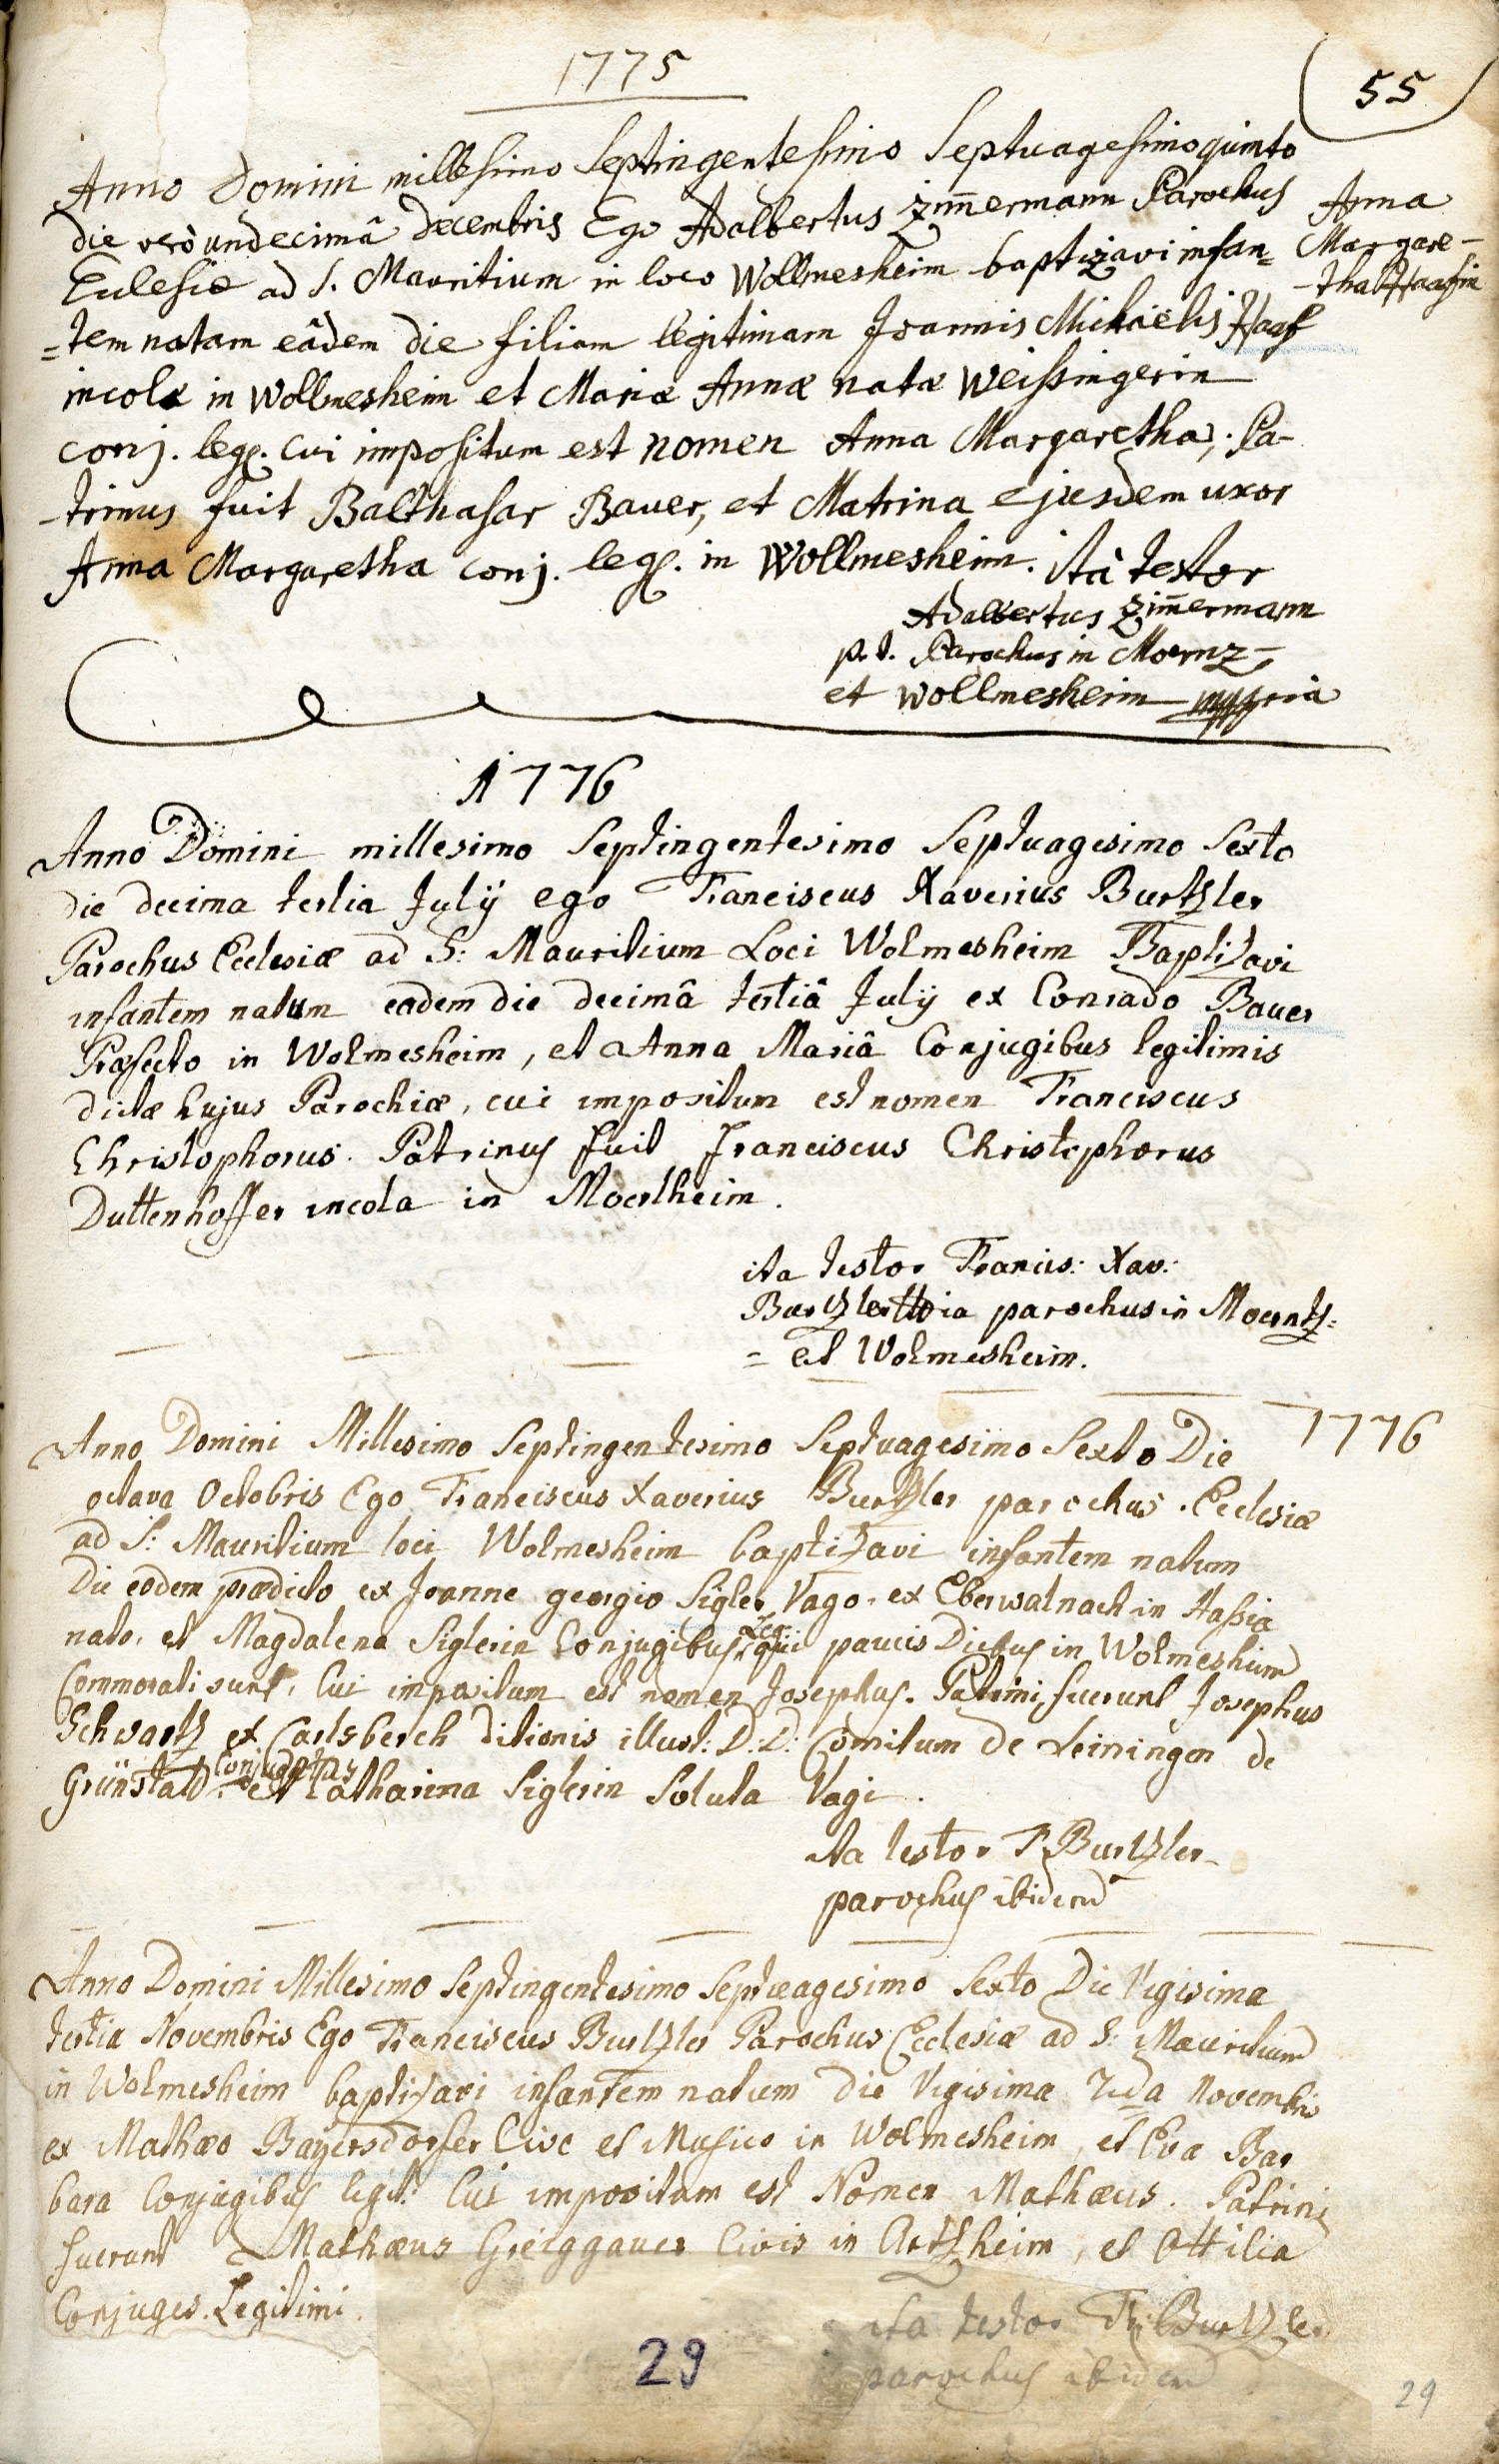 1775
55
Anno Domini millesimo Septingentesimo Septuagesimo quinto
die verò undecimâ Decembris Ego Adalbertus Zim̄ermann Parochus
Eclesiæ ad S. Mauritium in loco Wollmesheim baptizavi infan=
=tem natam eâdem die filiam legitimam Joannis Michaëlis Haaß
incolæ in Wollmesheim et Mariæ Annæ natæ Weissingerin
conj. leg. cui impositum est nomen Anna Margaretha; Pa-
-trinus fuit Balthasar Bauer, et Matrina ejusdem uxor
Anna Margaretha conj. leg. in Wollmesheim. ità testor
Adalbertus Zim̄ermann
p.t. Parochus in Moernz-
et Wollmesheim
Anna
Margare-
-tha Haaßin
1776
Anno Domini millesimo Septingentesimo Septuagesimo Sexto
die decima tertia Julÿ ego Franciscus Xaverius Burtzler
Parochus Ecclesiæ ad S: Mauritium Loci Wolmesheim Baptizavi
infantem natum eadem die decimâ tertiâ Julÿ ex Conrado Bauer
Præfecto in Wolmesheim, et Anna Mariâ Conjugibus legitimis
dictæ hujus Parochiæ, cui impositum est nomen Franciscus
Christophorus. Patrinus fuit Franciscus Christophorus
Duttenhoffer incola in Moerlheim.
ita testor Francis: Xav:
Burtzler parochus in Moerntz=
= et Wolmesheim.
1776
Anno Domini Millesimo Septingentesimo Septuagesimo Sexto Die
octava Octobris Ego Franciscus Xaverius Burtzler parochus Ecclesiæ
ad S: Mauritium loci Wolmesheim baptizavi infantem natum
Die eodem prædicto ex Joanne georgio Sigler Vago ex Eberwalnach in Hassia
nato, et Magdalena Siglerin Conjugibus Leg: qui paucis Diebus in Wolmesheim
Commorati sunt, Cui impositum est nomen Josephus. Patrini fuerunt Josephus
Schwartz ex Carlsberch ditionis illust: D: D: Comitum de Leiningen de
Grünstatt Conjugatus et Catharina Siglerin Soluta Vagi.
ita testor F Burtzler
parochus ibidem
Anno Domini Millesimo Septingentesimo Septuagesimo Sexto Die Vigisima
tertia Novembris Ego Franciscus Burtzler Parochus Ecclesiæ ad S: Mauritium
in Wolmesheim baptizavi infantem natum die Vigisima 2da Novembris
ex Mathæo Baÿersdorfer Cive et Musico in Wolmesheim, et Eva Bar
bara Conjugibus legit: Cui impositum est Nomen Mathæus. Patrini
fuerunt Mathæus Greiggauer Civis in Artzheim, et Ottilia
Conjuges Legitimi.
ita testor Fr: Burtzler
parochus ibidem
29
29